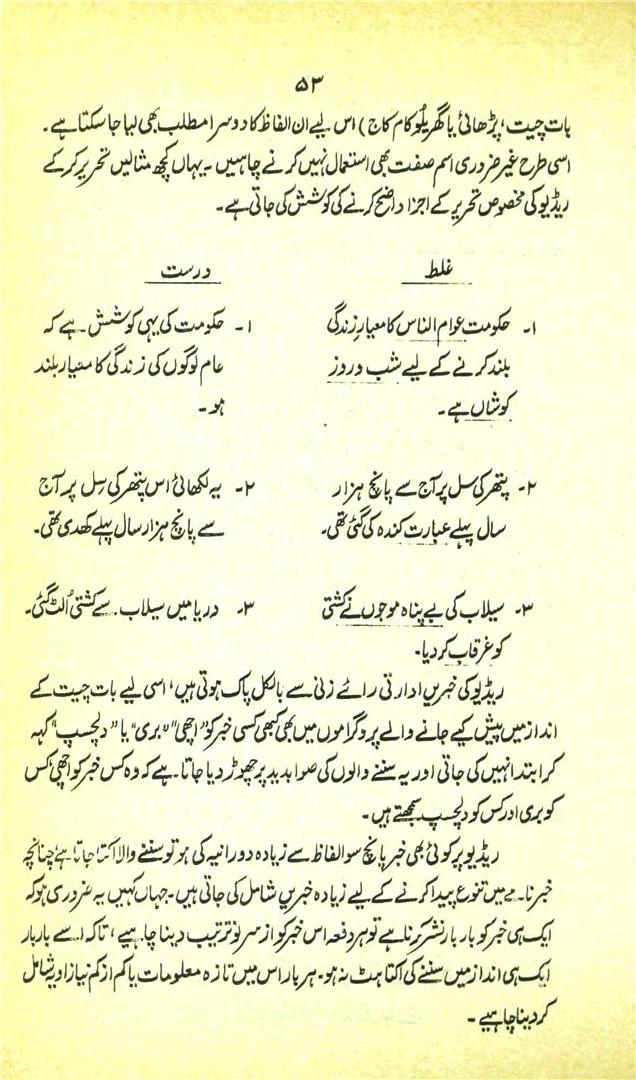 ۵۳
بات چیت، پڑھائی یا گھریلو کام کاج) اس لیے ان الفاظ کا دوسرا مطلب بھی لیا جا سکتا ہے۔
اسی طرح غیر ضروری اسم صفت بھی استعمال نہیں کرنے چاہئیں۔ یہاں کچھ مثالیں تحریر کر کے
ریڈیو کی مخصوص تحریر کے اجزا واضح کرنے کی کوشش کی جاتی ہے۔
غلط
۱۔ حکومت عوام الناس کا معیارِ زندگی
بلند کرنے کے لیے شب و روز
کوشاں ہے۔
۲۔ پتھر کی سل پر آج سے پانچ ہزار
سال پہلے عبارت کندہ کی گئی تھی۔
۳۔ سیلاب کی بے پناہ موجوں نے کشتی
کو غرقاب کر دیا۔
درست
۱۔ حکومت کی یہی کوشش ہے کہ
عام لوگوں کی زندگی کا معیار بلند
ہو۔
۲۔ یہ لکھائی اس پتھر کی سِل پر آج
سے پانچ ہزار سال پہلے کھدی تھی۔
۳۔ دریا میں سیلاب سے کشتی اُلٹ گئی۔
ریڈیو کی خبریں ادارتی رائے زنی سے بالکل پاک ہوتی ہیں، اسی لیے بات چیت کے
انداز میں پیش کیے جانے والے پروگراموں میں بھی کبھی کسی خبر کو "اچھی" "بری" یا "دلچسپ" کہہ
کر ابتدا نہیں کی جاتی اور یہ سننے والوں کی صوابدید پر چھوڑ دیا جاتا ہے کہ وہ کس خبر کو اچھی، کس
کو بری اور کس کو دلچسپ سمجھتے ہیں۔
ریڈیو پر کوئی بھی خبر پانچ سو الفاظ سے زیادہ دورانیہ کی ہو تو سننے والا اکتا جاتا ہے چنانچہ
خبرنامے میں تنوع پیدا کرنے کے لیے زیادہ خبریں شامل کی جاتی ہیں۔ جہاں کہیں یہ ضروری ہو کہ
ایک ہی خبر کو بار بار نشر کرنا ہے تو ہر دفعہ اس خبر کو از سرِ نو ترتیب دینا چاہیے، تاکہ اسے بار بار
ایک ہی انداز میں سننے کی اکتاہٹ نہ ہو۔ ہر بار اس میں تازہ معلومات یا کم از کم نیا زاویہ شامل
کر دینا چاہیے۔